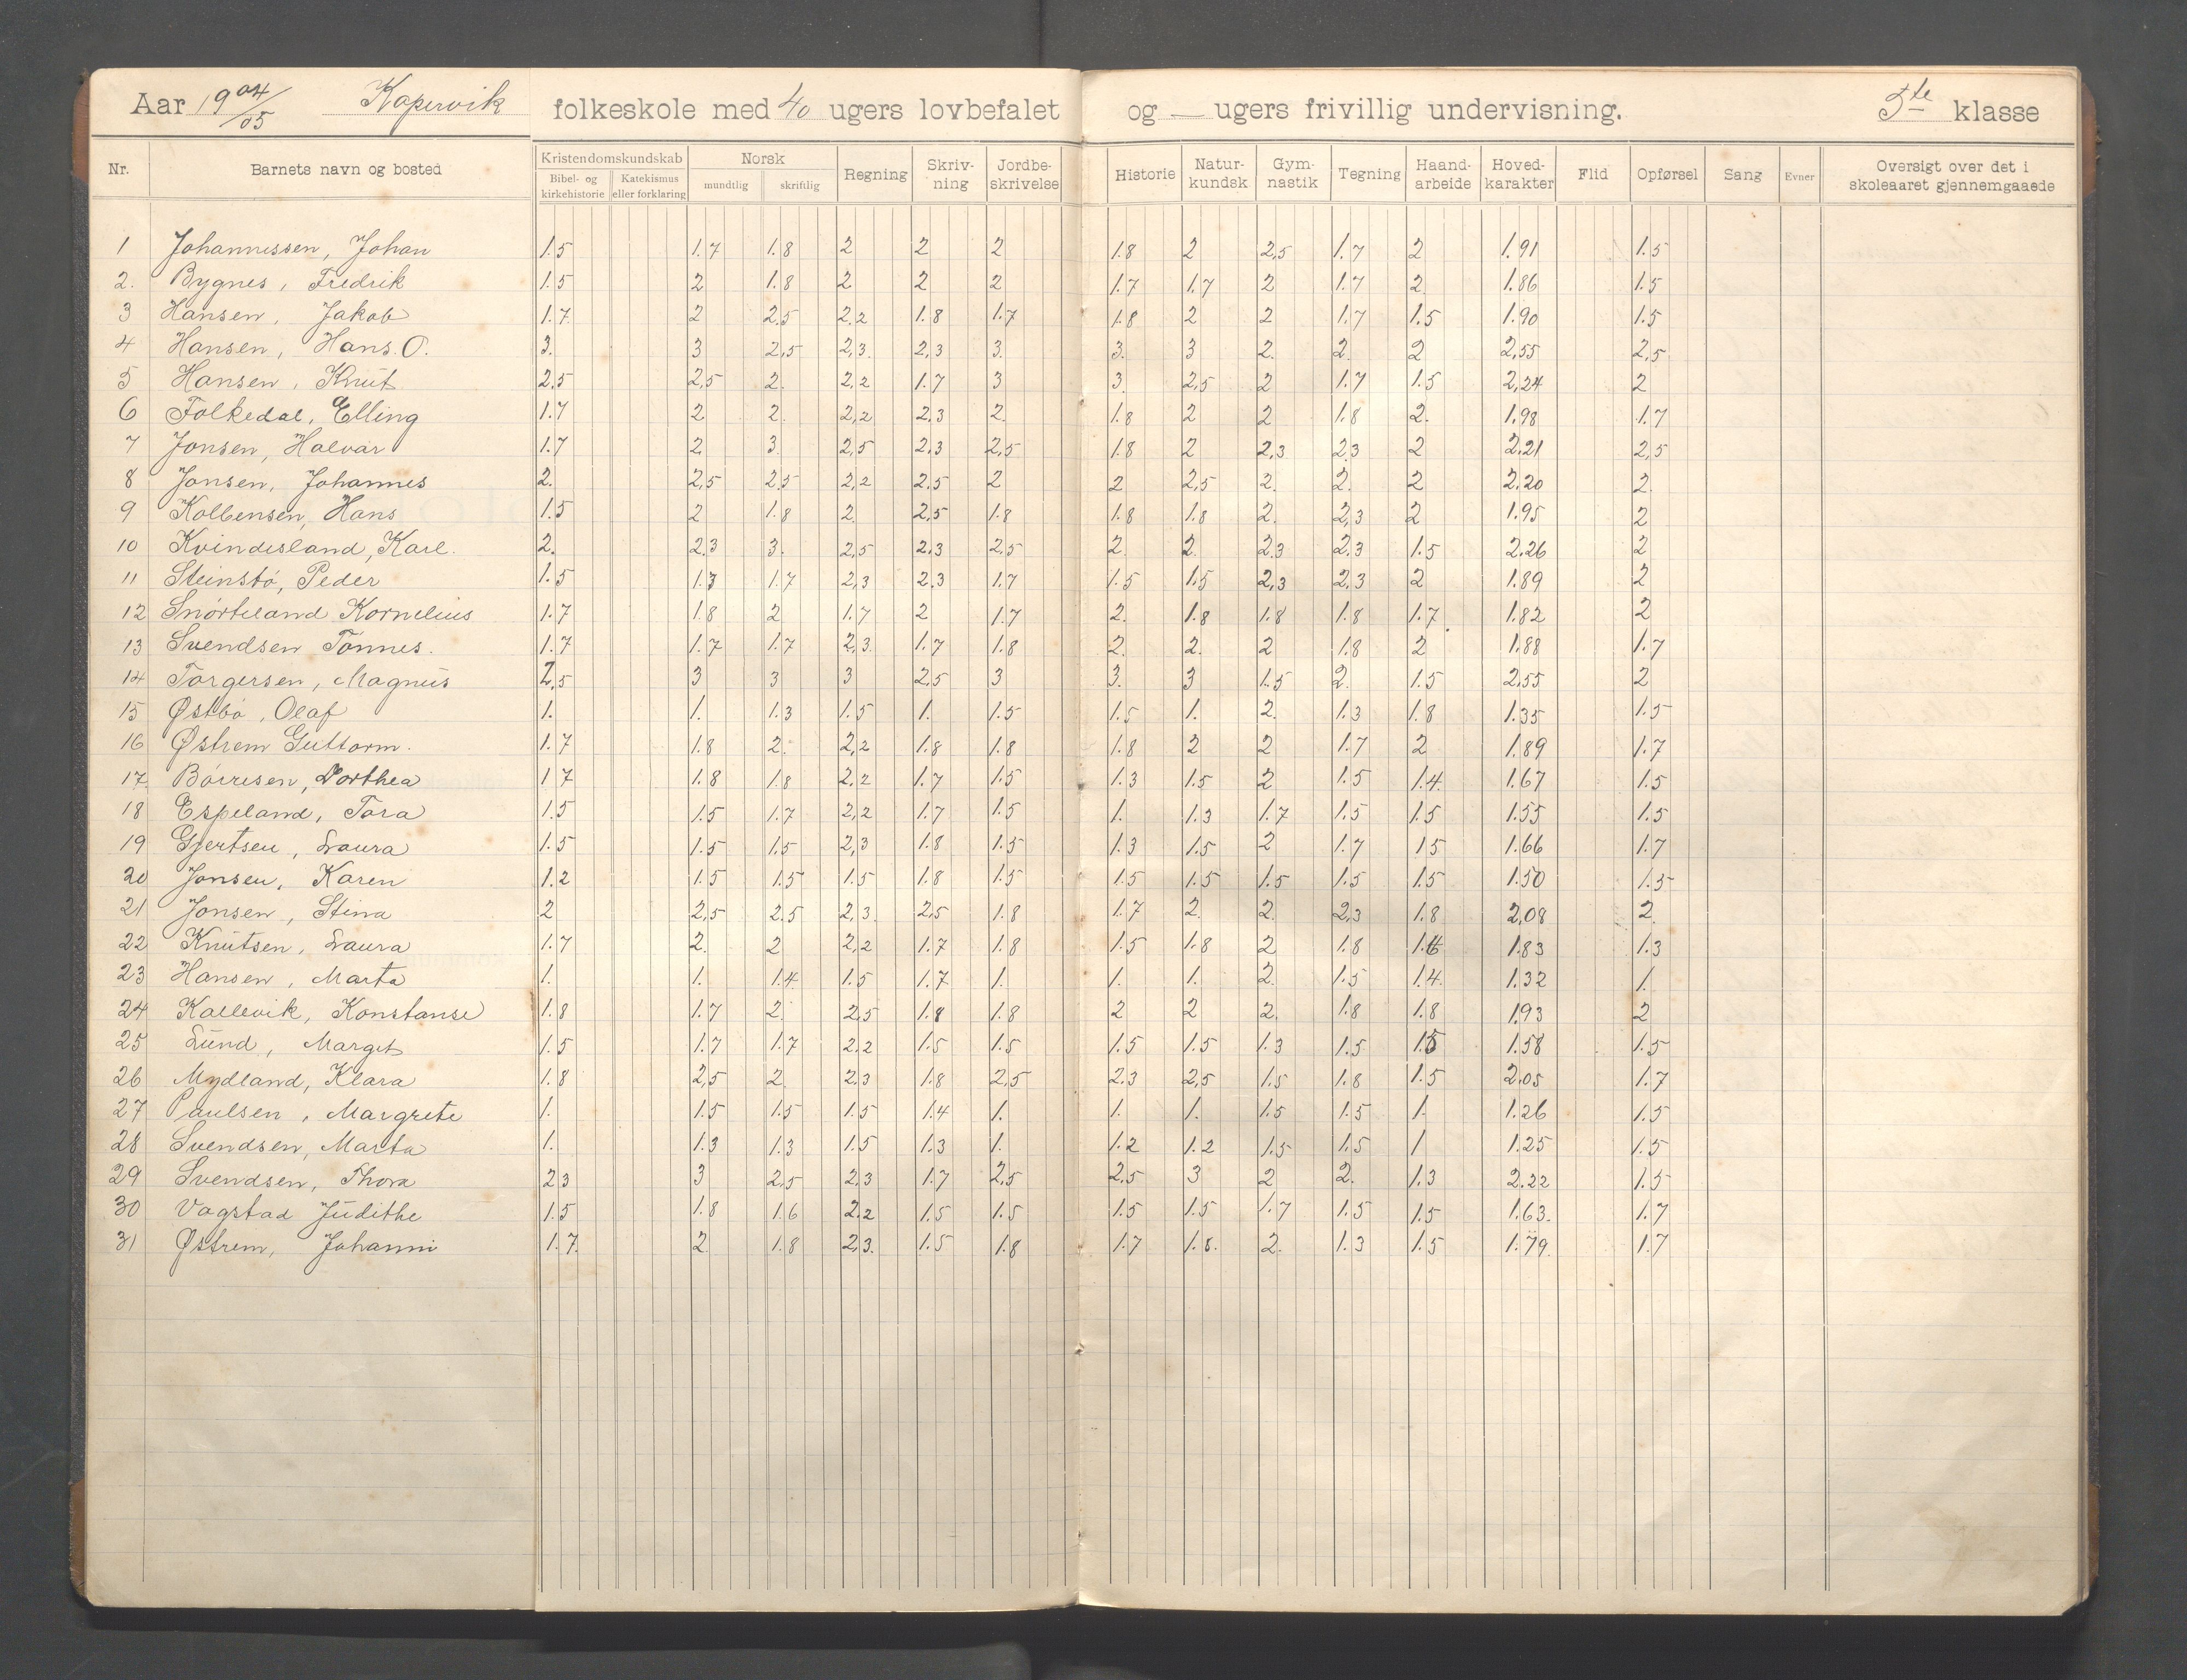 Aar 1904/05 Kopervik folkeskole med 40 ugers lovbefalet og — ugers frivillig undervisning. 5te klasse
Nr. Barnets navn og bosted Kristendomskundskab Norsk Regning Skriv- Jordbe- Historie Natur- Gym- Tegning Haand- Hoved- Flid Opførsel Sang Evner Oversigt over det i
Bibel- og Katekismus mundtlig skriftlig ning skrivelse kundsk nastik arbeide karakter skoleaaret gjennemgaaede
kirkehistorie eller forklaring
1 Johannessen, Johan 1.5 1.7 1.8 2 2 2 1.8 2 2,5 1.7 2 1.91 1.5
2. Bygnes, Fredrik 1.5 2 1.8 2 2 2 1.7 1.7 2 1.7 2 1.86 1.5
3 Hansen, Jakob 1.7 2 2.5 2.2 1.8 1.7 1.8 2 2 1.7 1.5 1.90 1.5
4 Hansen, Hans. O. 3. 3 2,5 2,3. 2,3 3. 3. 3 2. 2. 2 2,55 2,5
5 Hansen, Knut 2,5 2,5 2. 2,2 1.7 3 3. 2,5 2 1.7 1.5 2,24 2
6 Folkedal, Elling 1.7 2 2. 2,2 2.3 2. 1.8 2 2 1.8 2. 1.98 1.7
7 Jonsen, Halvar 1.7 2 3. 2,5 2.3 2,5 1.8 2 2,3 2.3 2 2.21 2,5
8 Jonsen, Johannes 2. 2,5 2.5 2,2 2,5 2 2 2,5 2. 2. 2 2.20 2.
9 Kolbensen, Hans 1.5 2 1.8 2 2,5 1.8 1.8 1.8 2. 2,3 2 1.95 2
10 Kvindesland, Karl. 2. 2.3 3. 2,5 2.3 2,5 2. 2. 2.3 2.3 1.5 2.26 2
11 Steinstø, Peder 1.5 1.3 1.7 2,3 2.3 1.7 1.5 1.5 2,3 2,3 2 1.89 2
12 Snørteland Kornelius 1.7 1.8 2 1.7 2 1.7 2. 1.8 1.8 1.8 1.7 1.82 2
13 Svendsen Tønnes. 1.7 1.7 1.7 2,3. 1.7 1.8 2. 2. 2 1.8 2 1.88 1.7
14 Torgersen, Magnus 2,5 3 3 3 2,5 3 3. 3 1.5 2. 1.5 2,55 2
15 Østbø, Olaf 1. 1. 1.3 1.5 1. 1.5 1.5 1. 2. 1.3 1.8 1.35 1.5
16 Østrem Guttorm. 1.7 1.8 2. 2,2 1.8 1.8 1.8 2 2 1.7 2 1.89 1.7
17. Børresen, Dorthea 1 7 1.8 1.8 2.2 1.7 1.5 1.3 1.5 2 1.5 1.4. 1.67 1.5
18 Espeland, Tora 1.5 1.5 1.7 2,2 1.7 1.5 1. 1.3 1.7 1.5 1.5 1.55 1.5
19 Gjertsen, Laura 1.5 1.5 1.5 2,3 1.8 1.5 1.3 1.5 2 1.7 1 5 1.66 1.7
20 Jonsen, Karen 1.2 1.5 1.5 1.5 1.8 1.5 1.5 1.5 1.5 1.5 1.5 1.50 1.5
21 Jonsen, Stina 2 2,5 2.5 2,3. 2,5 1.8 1.7 2. 2. 2,3 1.8 2,08 2.
22 Knutsen, Laura 1.7 2. 2 2,2 1.7 1.8 1.5 1.8 2 1.8 1.83 1.3
23 Hansen, Marta 1. 1. 1.4 1.5 1.7 1. 1. 1. 2. 1.5 1.4. 1.32 1.
24 Kallevik, Konstanse 1.8 1.7 2 2,5 1.8 1.8 2 2 2. 1.8 1.8 1.93 2
25 Lund, Margit 1.5 1.7 1.7 2.2 1.5 1.5 1.5 1.5 1.3 1.5 1.5 1.58 1.5
26 Mydland, Klara 1.8 2,5 2. 2.3 1.8 2,5 2.3 2,5 1.5 1.8 1.5 2.05 1.7
27 Paulsen, Margrete 1. 1.5 1.5 1.5 1.4 1. 1. 1. 1.5 1.5 1. 1.26 1.5
28 Svendsen, Marta 1. 1.3 1.3 1.5 1.3 1. 1.2 1.2 1.5 1.5 1 1.25 1.5
29 Svendsen, Thora 2 3 3 2,5 2,3 1.7 2,5 2,5 3 2 2. 1.3 2.22 1.5
30 Vagstad Judithe 1.5 1.8 1.6 2.2 1.5 1.5 1.5 1.5 1.7 1.5 1.5 1.63. 1.7
31 Østrem, Johanni 1.7. 2. 1.8 2,3. 1.5 1.8 1.7 1.8. 2. 1.3 1.5 1.79. 1.7